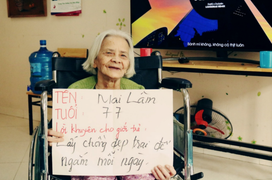 TÊN Mai Lâm
TUỔI 77
Lời khuyên cho giới trẻ:
Lấy chồng đẹp trai để
ngắm mỗi ngay.